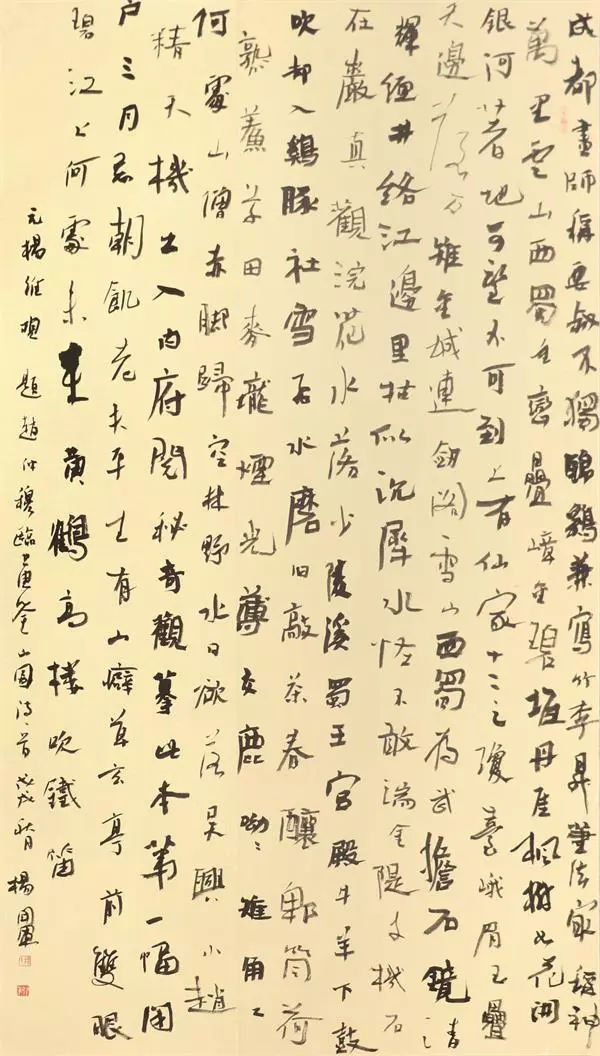 成都畫師稱要叔不獨臨鷄兼寫竹李昇筆法最稱神
萬里雲山西蜀重巒疊嶂金碧堆丹崖楓樹如花開
銀河著地可望不可到上有仙家十二之瓊臺峨眉玉疊
天邊落万雉金城連劍閣雪山西蜀為武擔石鏡清
輝纏井絡江邊里牡似沉犀水怪不敢湍金隄支機石
在嚴真觀浣花水落少陵溪蜀王宮殿牛羊下鼓
吹却入鷄豚社雪石水磨日敲茶春釀郫筒荷
熟蕎芋田麥壠煙光薄友鹿呦〻雄角〻
何處山僧赤脚歸空林野水日欲落吳興小趙
精天機出入內府閱秘奇觀摹此本第一幅閉
戶三月忘朝飢老夫平生有山癖草玄亭前雙眼
碧江上何處未來黃鶴高樓吹鐵笛
元楊維楨題趙仲穆臨黃筌山圖詩一首戊戌楊